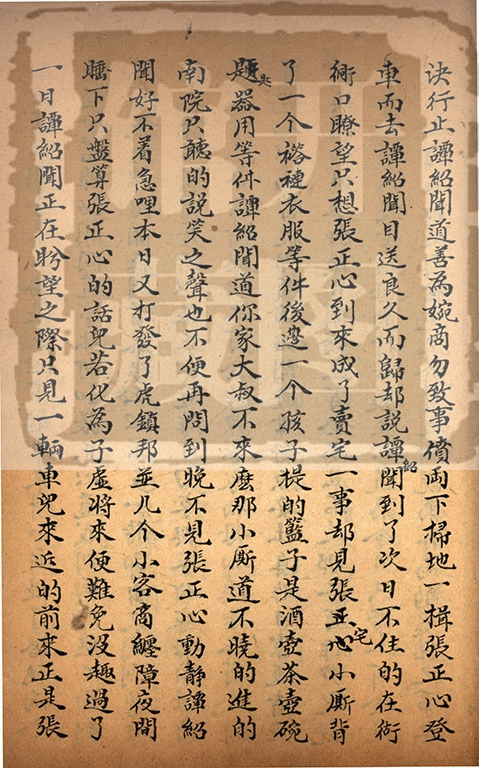 決行止譚紹聞道善為婉商勿致事僨両下掃地一揖張正心登
車而去譚紹聞目送良久而歸却說譚紹聞到了次日不住的在衚
衕口瞭望只想張正心到來成了賣宅一事却見張正心宅小厮背
了一个褡褳衣服等件後邊一个孩子提的籃子是酒壺茶壺碗
匙器用等件譚紹聞道你家大叔不來麼那小厮道不曉的進的
南院只聽的說笑之聲也不便再問到晚不見張正心動靜譚紹
聞好不着急哩本日又打發了虎鎮邦並几个小客商纏障夜間
睡下只盤算張正心的話兒若化為子虛將來便難免没趣過了
一日譚紹聞正在盼望之際只見一輛車兒來近的前來正是張